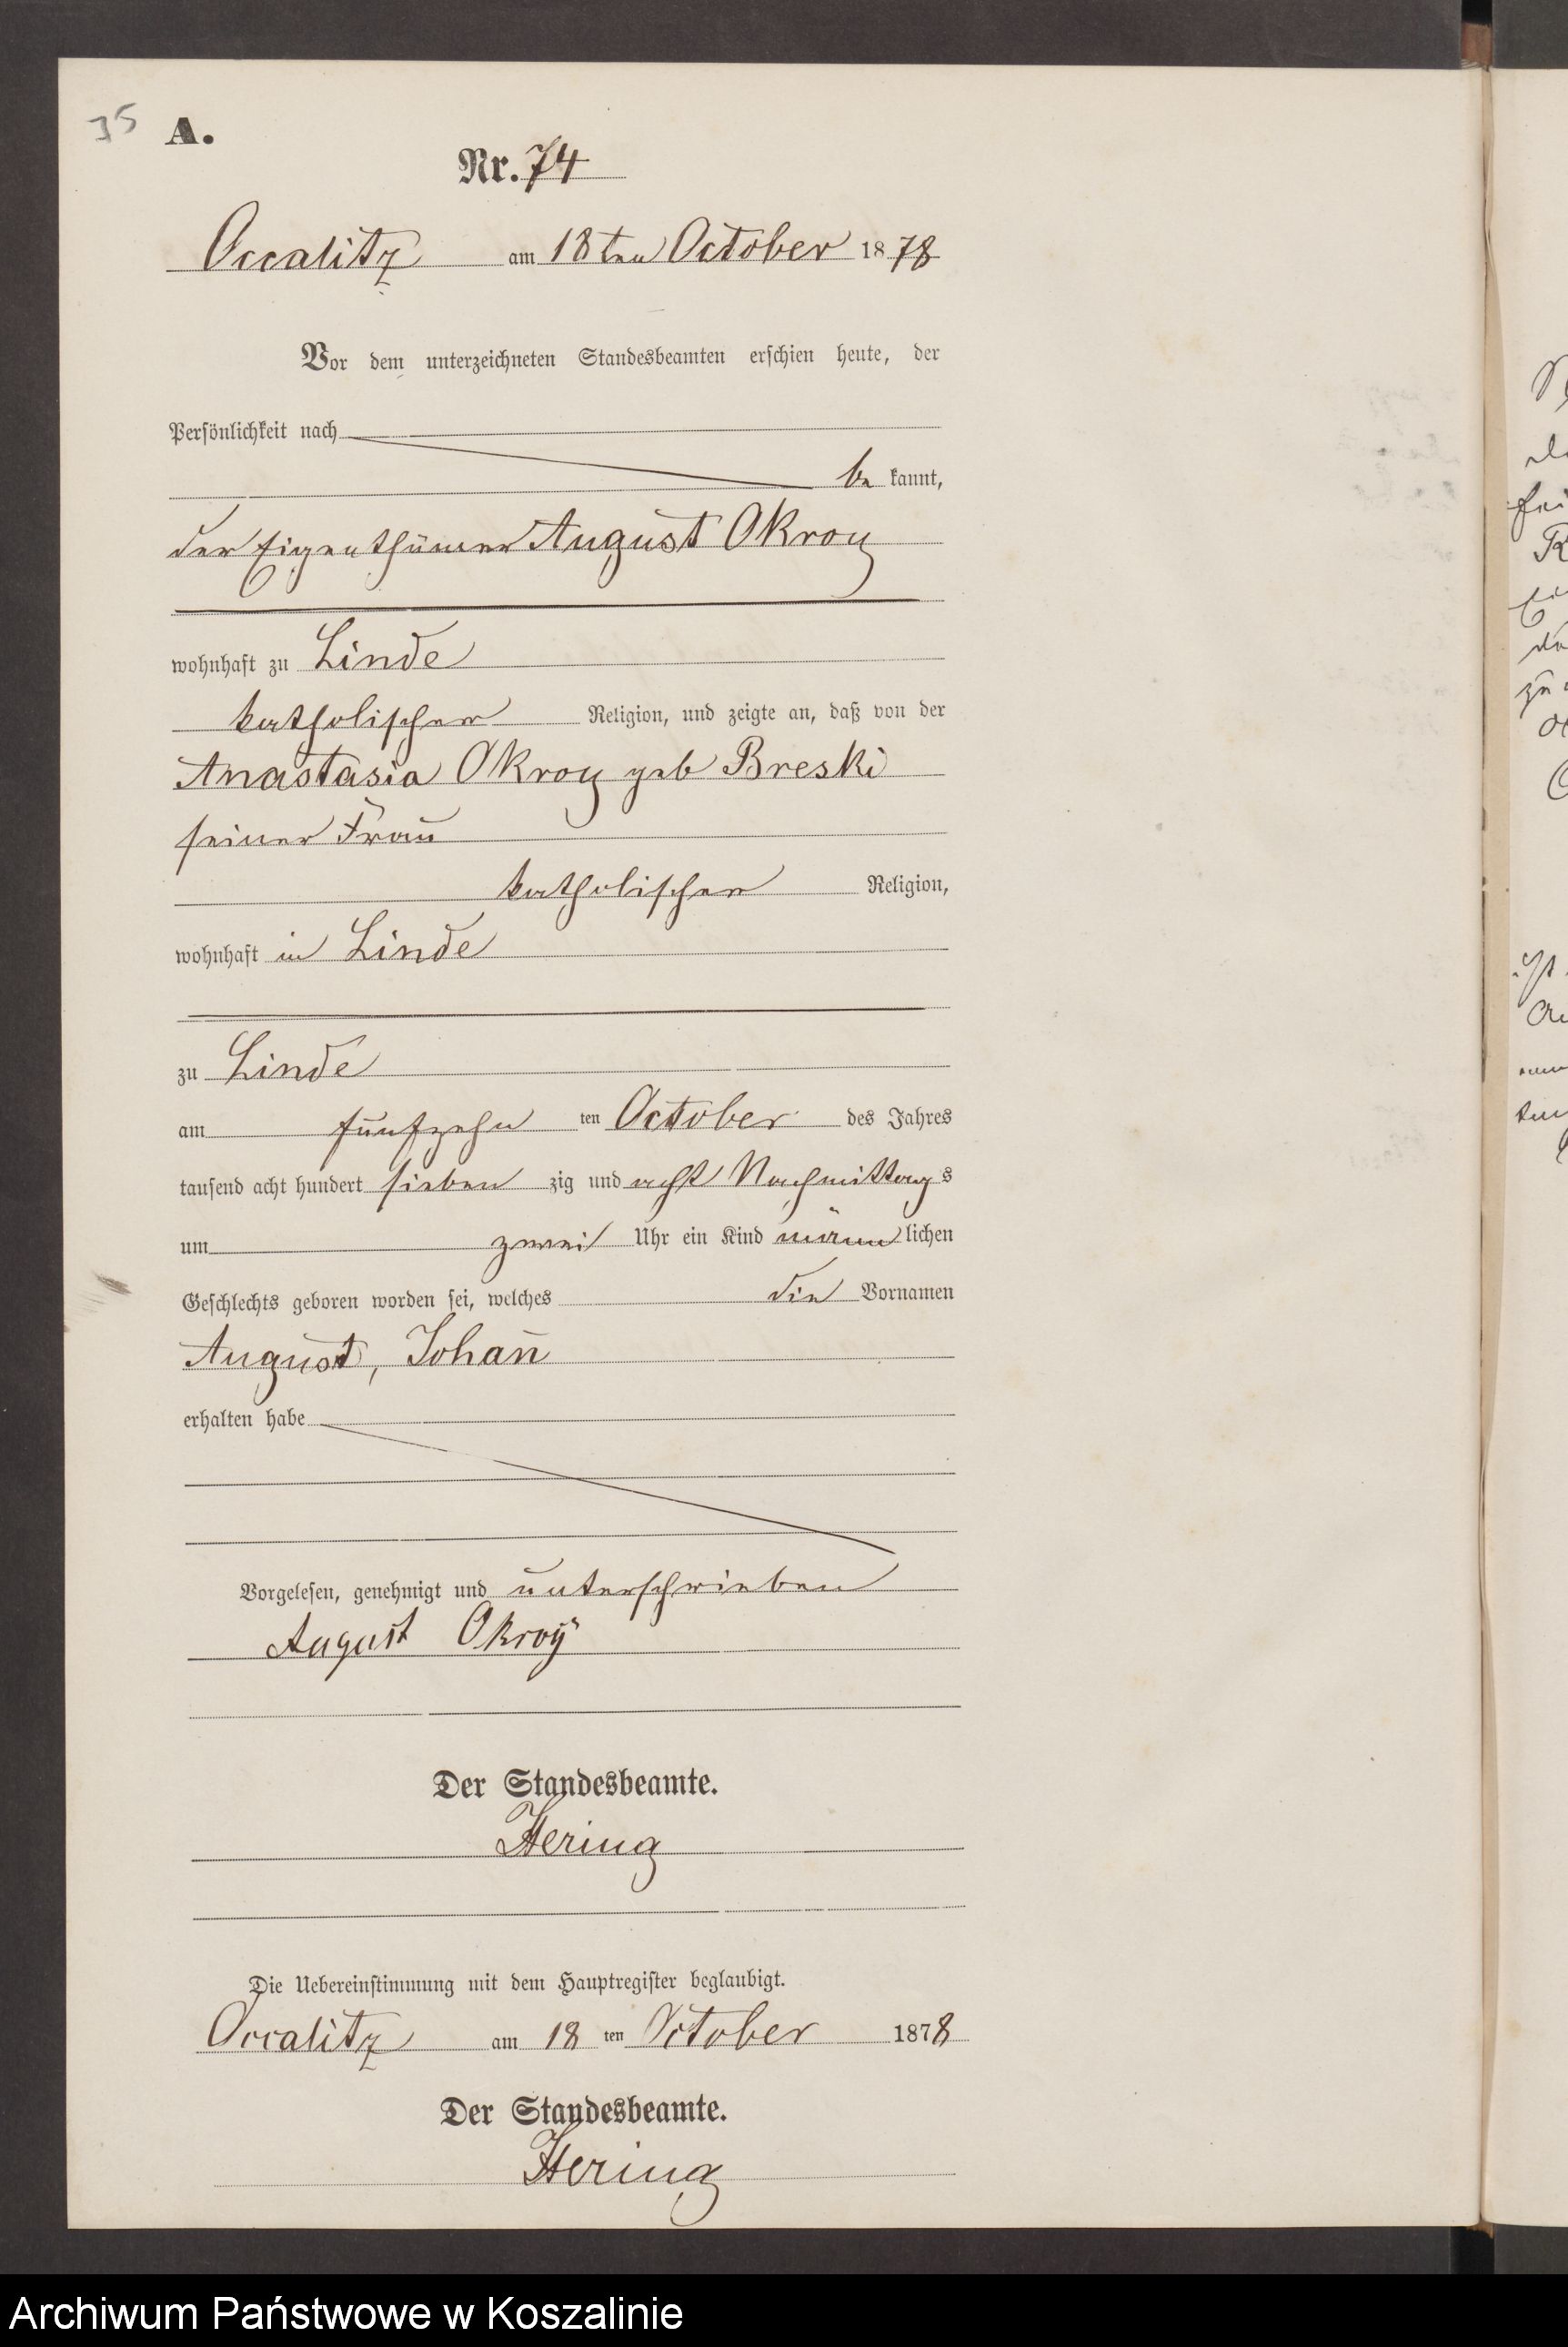 35 A.
Nr. 74
Occalitz am 18ten October 1878
Vor dem unterzeichneten Standesbeamten erschien heute, der
Persönlichkeit nach
be kannt,
der Eigenthümer August Okroy
wohnhaft zu Linde
katholischer Religion, und zeigte an, daß von der
Anastasia Okroy geb Breski
seiner Frau
katholischer Religion,
wohnhaft in Linde
zu Linde
am fünfzehn ten October des Jahres
tausend acht hundert sieben zig und acht Nachmittags
um zwei Uhr ein Kind männ lichen
Geschlechts geboren worden sei, welches die Vornamen
August, Johan̄
erhalten habe
Vorgelesen, genehmigt und unterschrieben
August Okroÿ
Der Standesbeamte.
Hering
Die Uebereinstimmung mit dem Hauptregister beglaubigt.
Occalitz am 18 ten October 1878
Der Standesbeamte.
Hering
Archiwum Państwowe w Koszalinie